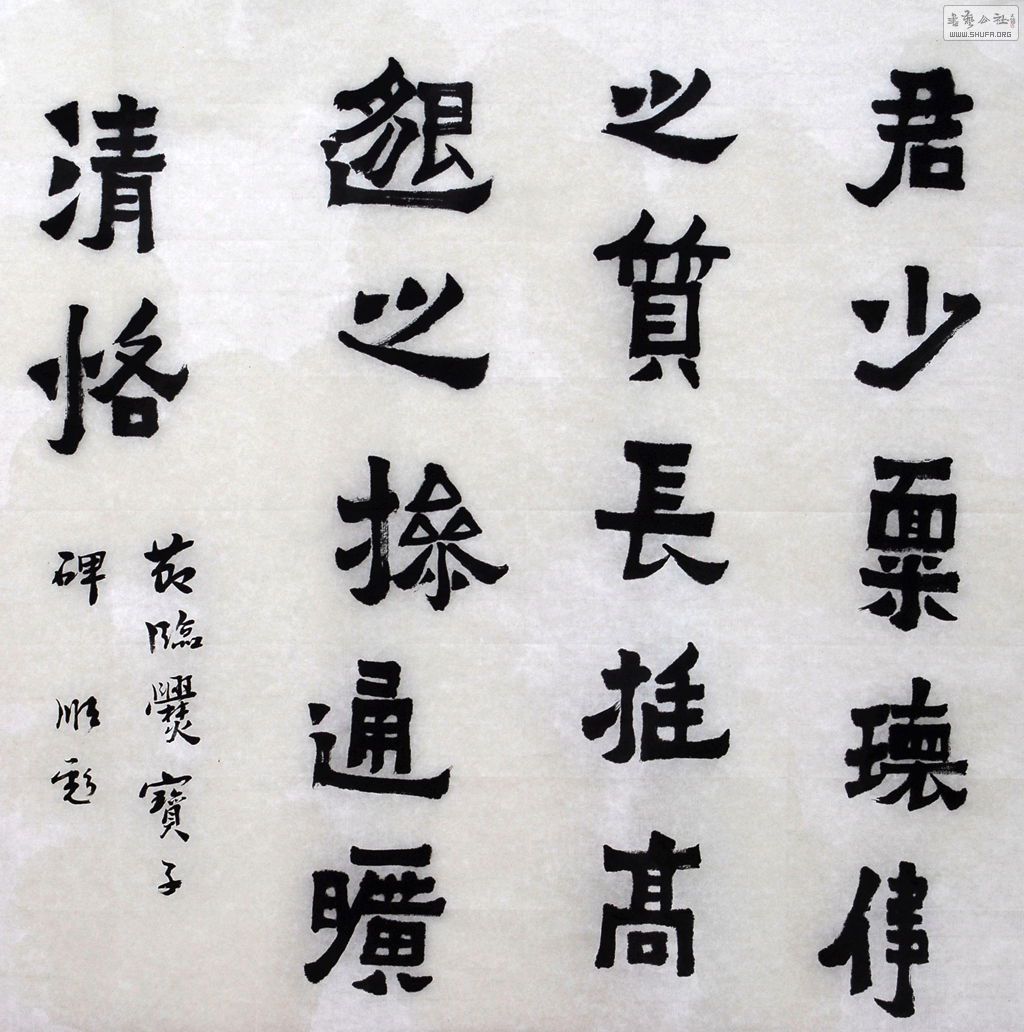 君少稟瓌偉
之質長挺高
邈之操通曠
清恪
節臨爨寶子
碑 順彪
書藝公社
WWW.SHUFA.ORG